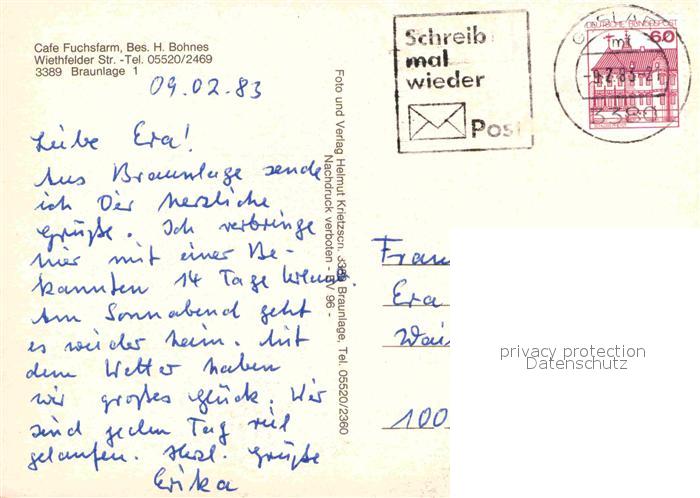 Cafe Fuchsfarm, Bes. H. Bohnes
Wiethfelder Str. -Tel. 05520/2469
3389 Braunlage 1
09.02.83
Liebe Eva!
Aus Braunlage sende
ich Dir herzliche
Grüße. Ich verbringe
hier mit einer Be-
kannten 14 Tage Urlaub.
Am Sonnabend geht
es wieder heim. Mit
dem Wetter haben
wir großes Glück. Wir
sind jeden Tag viel
gelaufen. Herzl. Grüße
Erika
Foto und Verlag Helmut Krietzsch, 3389 Braunlage, Tel. 05520/2360
Nachdruck verboten - BV 96 -
Schreib
mal
wieder
Post
DEUTSCHE BUNDESPOST
60
mf
3380
Frau
Eva
100
privacy protection
Datenschutz